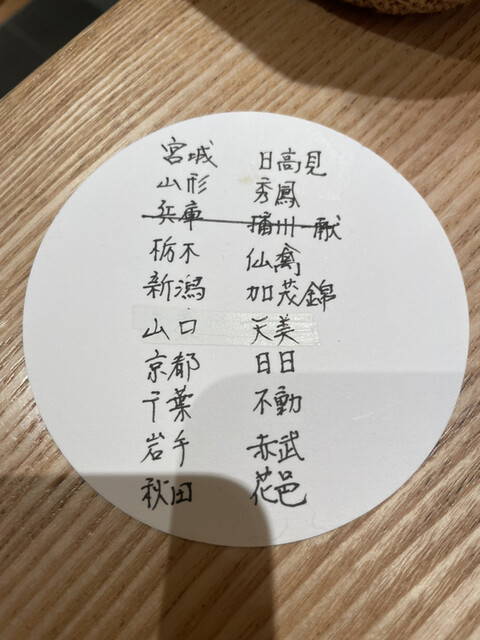 宮城 日高見
山形 秀鳳
兵庫 播州一献
栃木 仙禽
新潟 加茂錦
山口 天美
京都 日日
千葉 不動
岩手 赤武
秋田 花邑